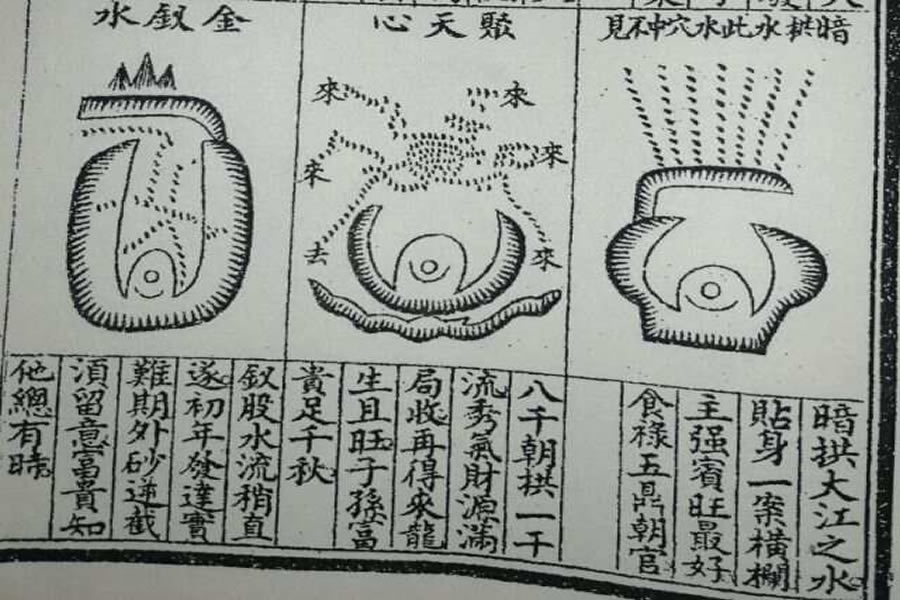 暗拱水此水穴中不見
暗拱大江之水
貼身一案橫欄
主强賓旺最好
食祿五鼎朝官
天心
來
來
來
來
來
去
八千朝拱一干
流秀氣財源滿
局收再得來龍
生且旺子孫富
貴足千秋
金釵水
釵股水流稍直
遂初年發達實
難期外砂遞截
湏留意富貴知
他總有時